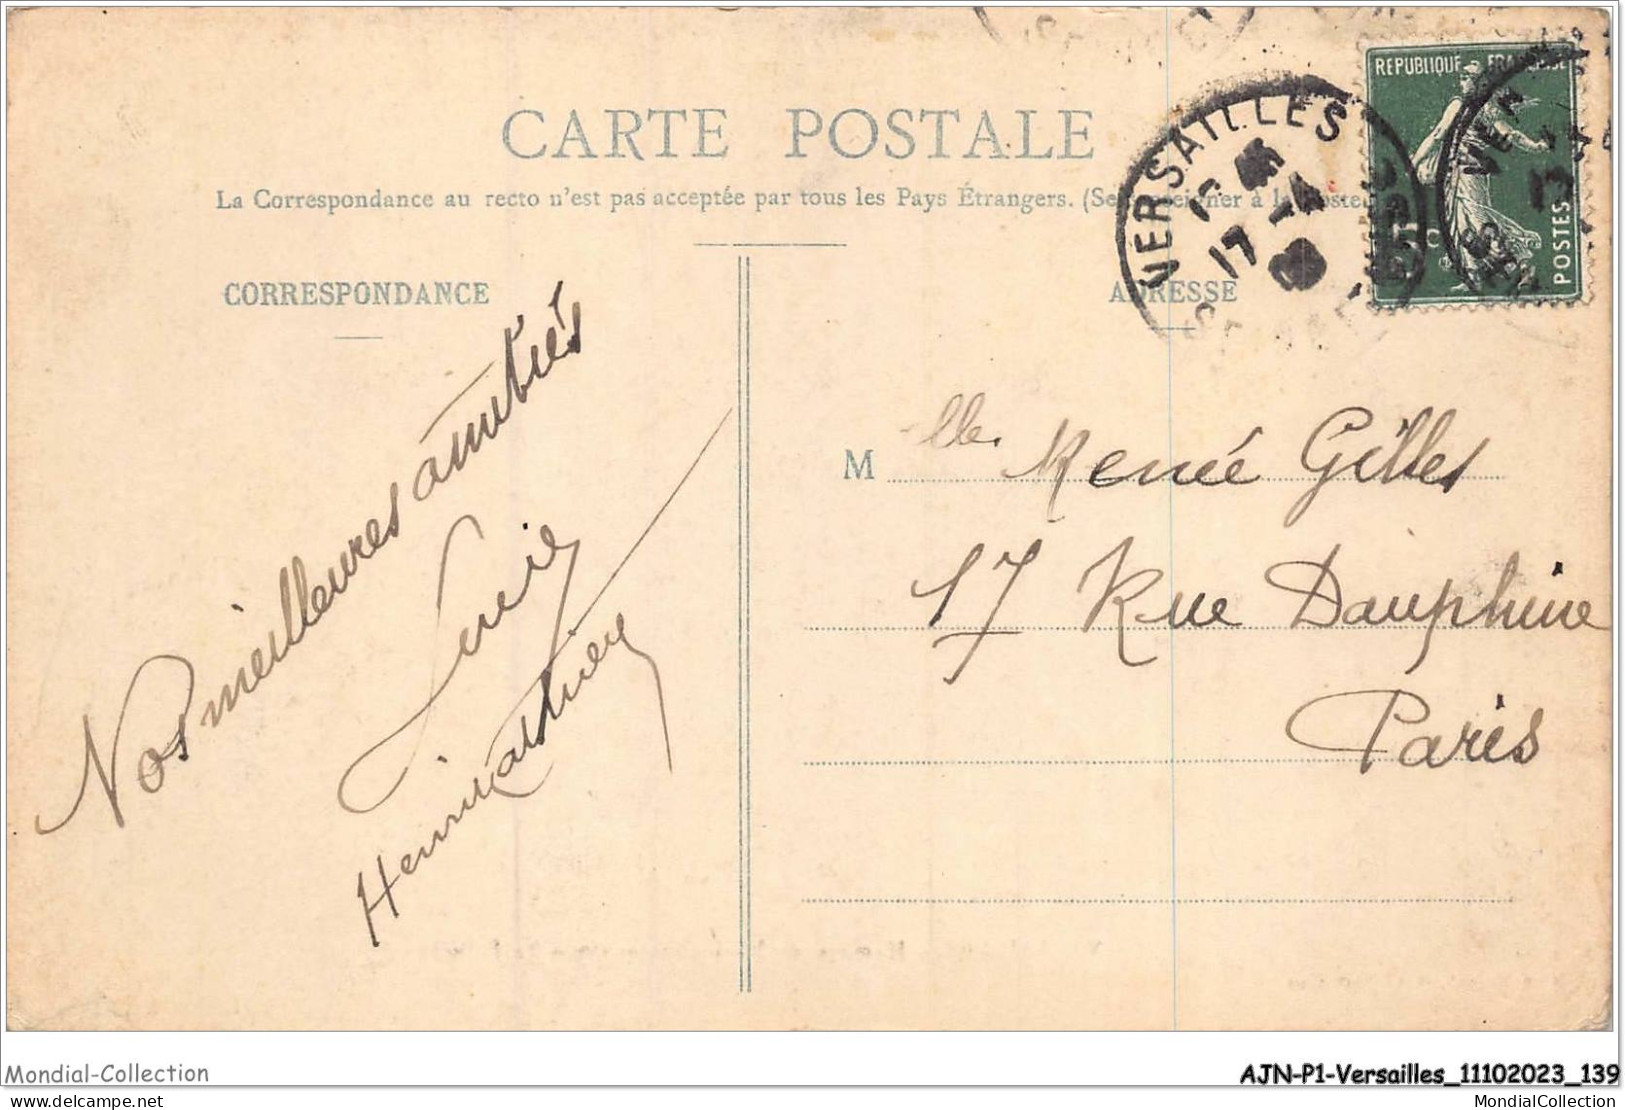 CARTE POSTALE
La Correspondance au recto n'est pas acceptée par tous les Pays Étrangers. (Se
CORRESPONDANCE
ADRESSE
REPUBLIQUE FRANÇAISE
POSTES
VERSAILLES
17
Nos meilleures amitiés
M lle. Renée Gilles
17 Rue Dauphine
Paris
Mondial-Collection
AJN-P1-Versailles_11102023_139
delcampe.net
MondialCollection